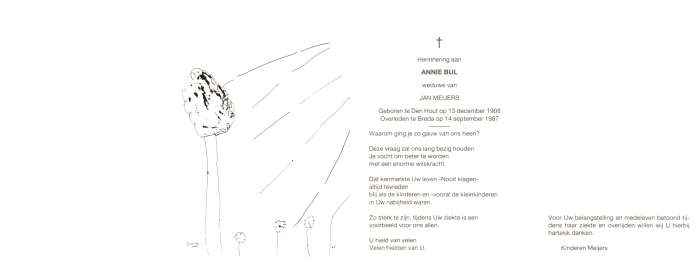 Herinnering aan
ANNIE BUL
weduwe van
JAN MEIJERS
Geboren te Den Hout op 13 december 1908
Overleden te Breda op 14 september 1987
Waarom ging je zo gauw van ons heen?
Deze vraag zal ons lang bezig houden
Je vocht om beter te worden
met een enorme wilskracht.
Dat kenmerkte Uw leven -Nooit klagen-
altijd tevreden
blij als de kinderen en -vooral de kleinkinderen
in Uw nabijheid waren.
Zo sterk te zijn, tijdens Uw ziekte is een
voorbeeld voor ons allen.
U hield van velen
Velen hielden van U.
Voor Uw belangstelling en medeleven betoond tij-
dens haar ziekte en overlijden willen wij U hierbij
hartelijk danken.
Kinderen Meijers